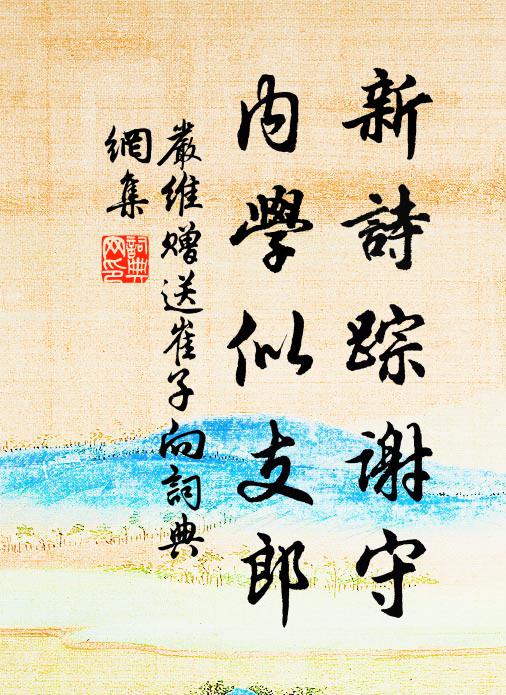 新詩踪謝守
內學似支郎
嚴維贈送崔子向詞典
網集
詞典
网印